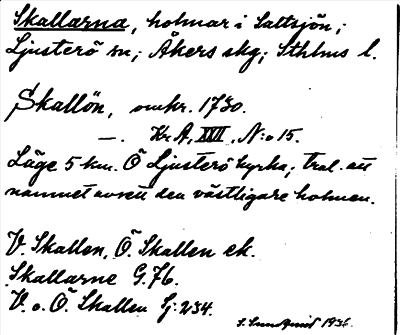 Skallarna, holmar i Saltsjön;
Ljusterö sn; Åkers skg; Sthlms l.
Skallön, omkr. 1730.
—. Kr A, XVII, N:o 15.
Läge 5 km. Ö Ljusterö kyrka; trol. att
namnet avser den västligare holmen.
V. Skallen, Ö. Skallen ek.
Skallarne G. 76.
V. o. Ö. Skallen Sj: 234.
1936.